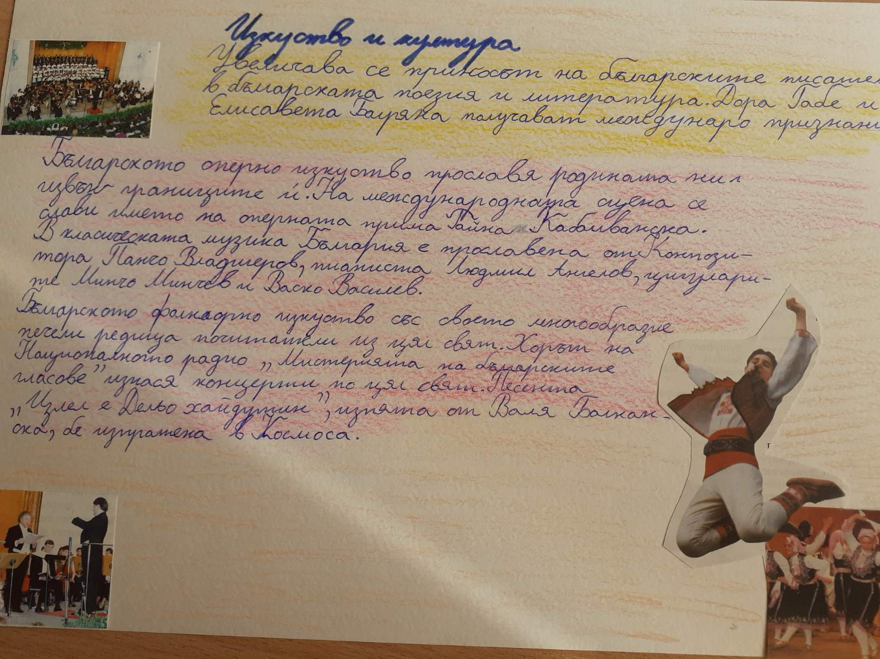 Изкуство и култура
Увеличава се приносът на българските писатели
в българската поезия и литература. Дора Габе и
Елисавета Багряна получават междунаро признани
Българското оперно изкуство прославя родината ни
извън границите ѝ. На международната сцена се
слави името на оперната прима Райна Кабаиванска.
В класическата музика България е прославена от Компози-
тора Панчо Владигеров, пианиста Людмил Ангелов, цигулари-
те Минчо Минчев и Васко Василев.
Българското фолклорно изкуство със своето многообразие
печели редица почитатели из цял свят. Хорът на
Националното радио „Мистерията на българските
гласове" изнася концерти по цял свят. Песента
„Излел е Дельо хайдутин", изпята от Валя Балкан-
ска, бе изпратена в Космоса.